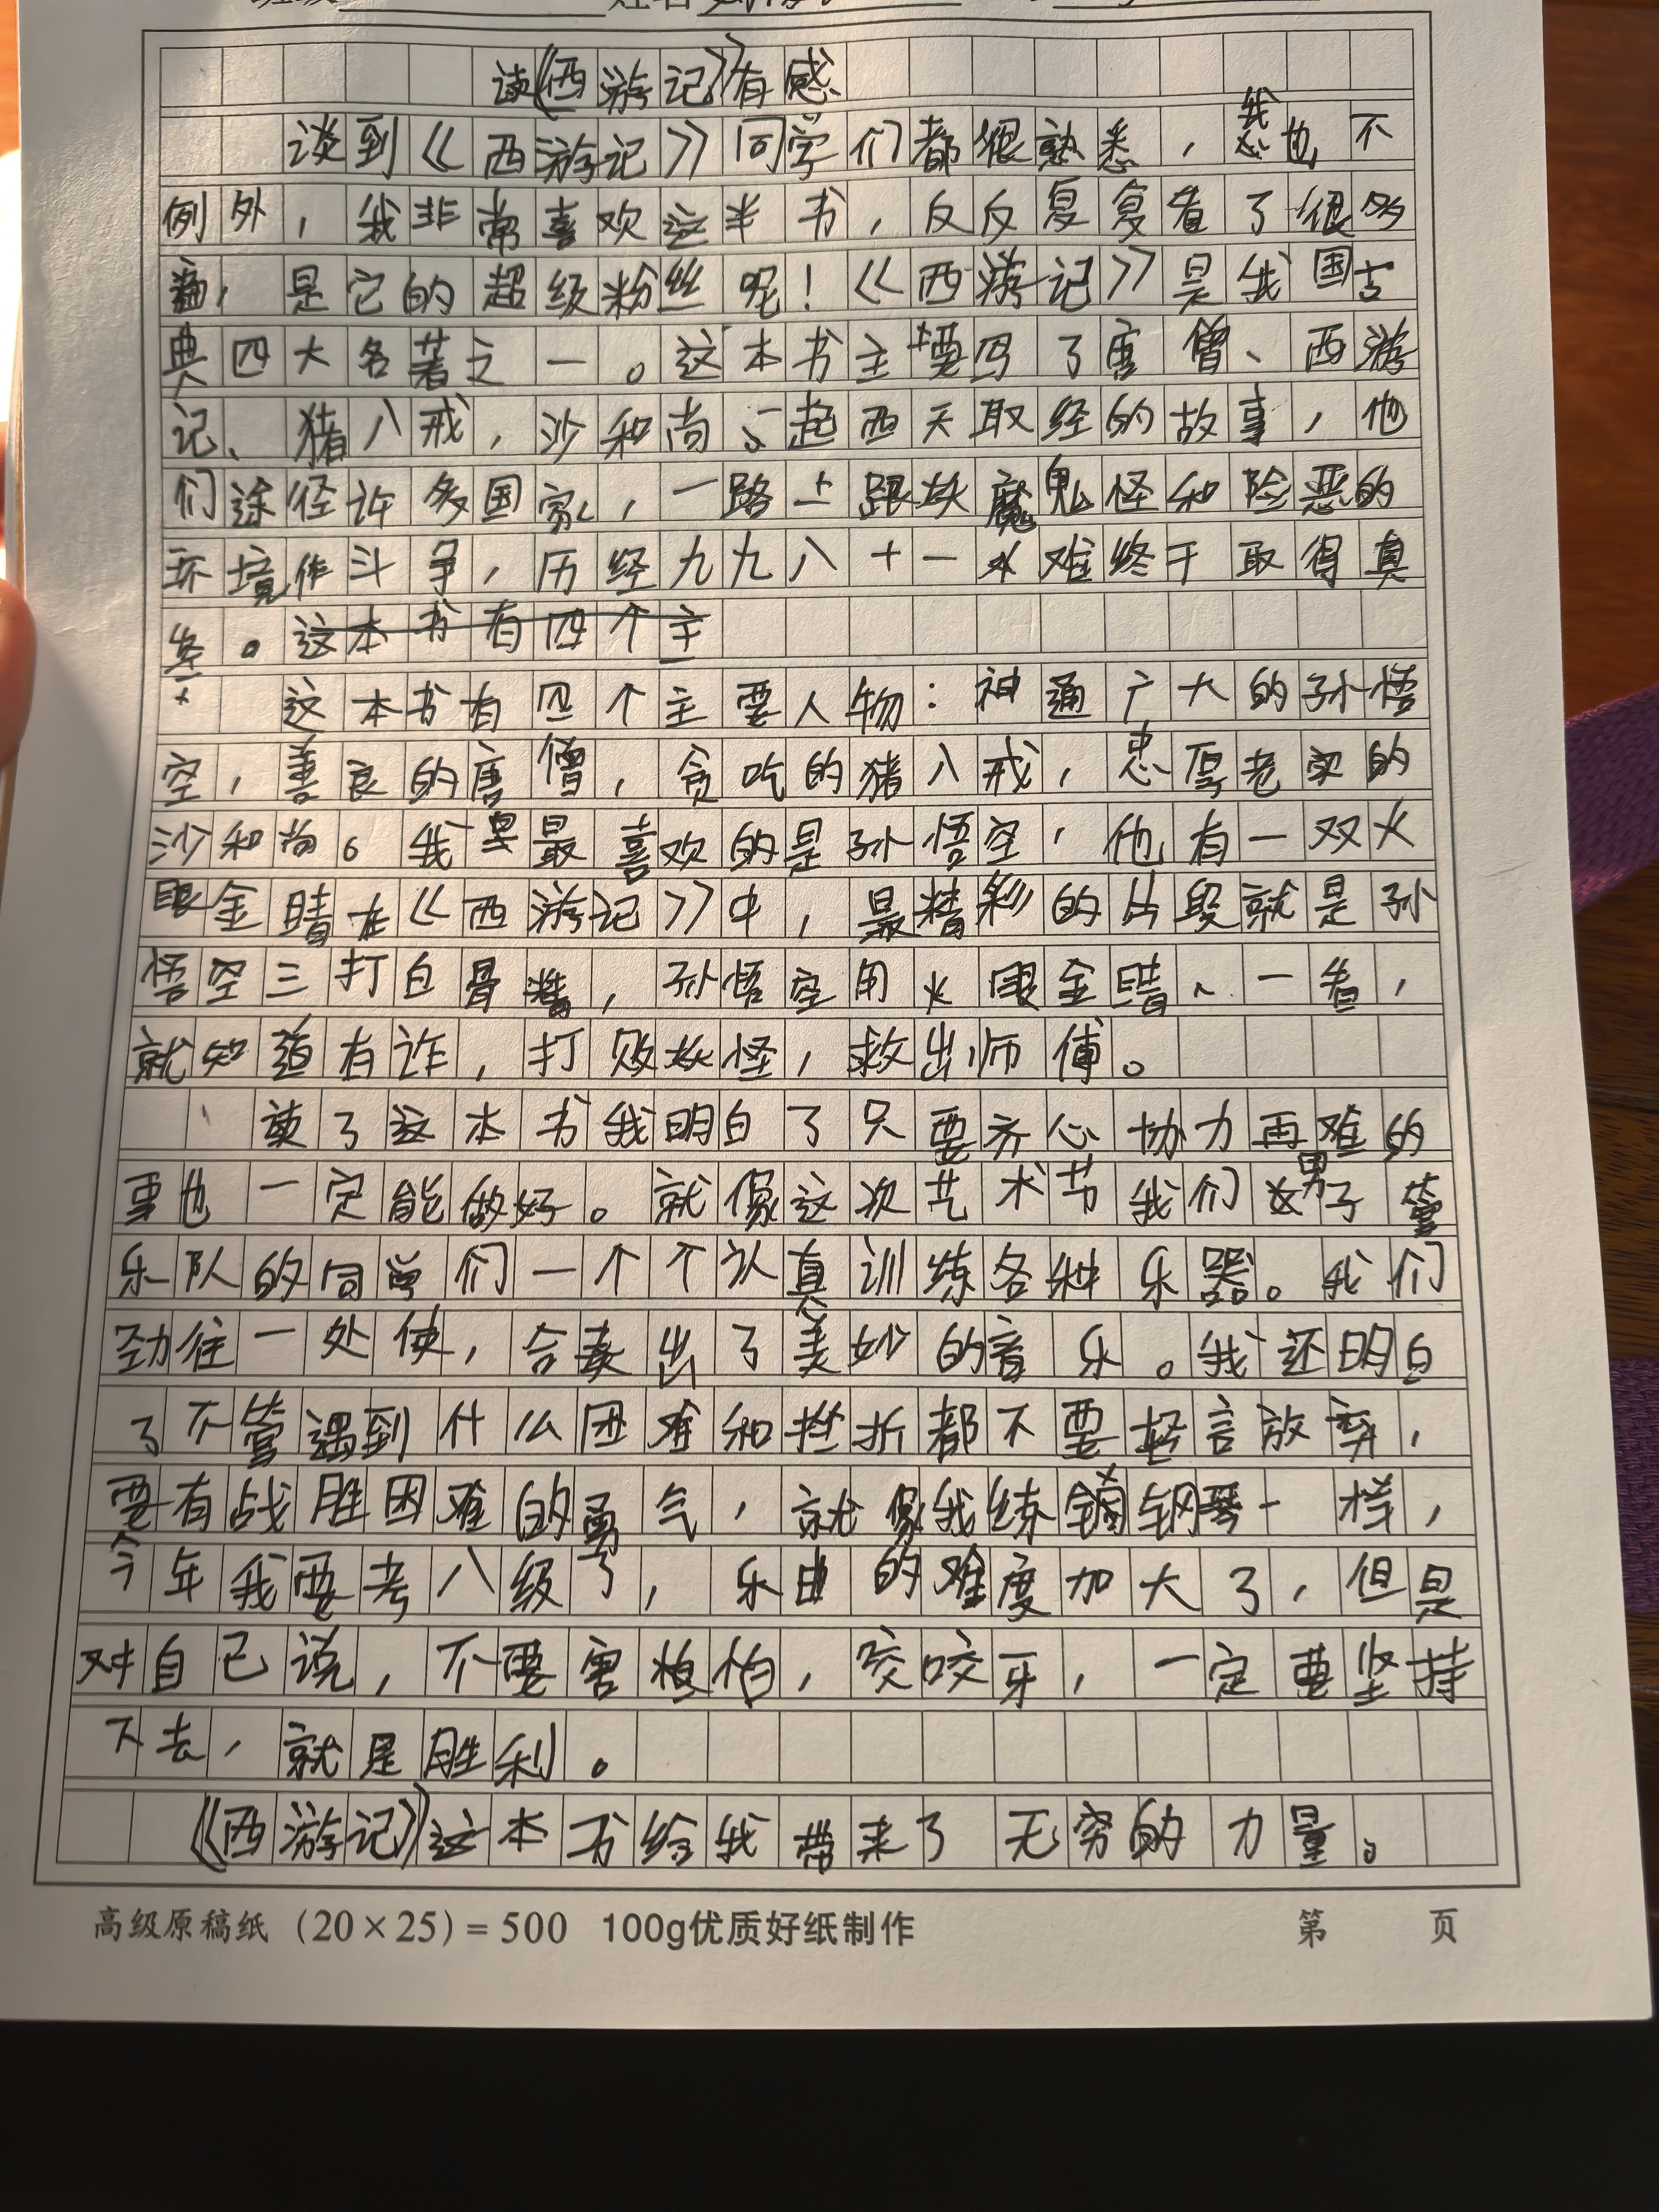 读《西游记》有感
谈到《西游记》同学们都很熟悉，我也不
例外，我非常喜欢这半书，反反复复看了很多
遍，是它的超级粉丝呢！《西游记》是我国古
典四大名著之一。这本书主要写了唐僧、西游
记、猪八戒，沙和尚、一起西天取经的故事，他
们途径许多国家，一路上跟妖魔鬼怪和险恶的
环境作斗争，历经九九八十一难终于取得真
经。这本书有四个主
这本书有四个主要人物：神通广大的孙悟
空，善良的唐僧，贪吃的猪八戒，忠厚老实的
沙和尚。我最喜欢的是孙悟空，他有一双火
眼金睛在《西游记》中，最精彩的片段就是孙
悟空三打白骨精，孙悟空用火眼金睛、一看，
就知道有诈，打败妖怪，救出师傅。
读了这本书我明白了只要齐心协力再难的
事也一定能做好。就像这次艺术节我们男子管
乐队的同学们一个个认真训练各种乐器。我们
劲往一处使，合奏出了美妙的音乐。我还明白
了不管遇到什么困难和挫折都不要轻言放弃，
要有战胜困难的勇气，就像我练钢琴一样，
今年我要考八级了，乐曲的难度加大了，但是
对自己说，不要害怕，咬咬牙，一定要坚持
下去，就是胜利。
《西游记》这本书给我带来了无穷的力量。
高级原稿纸 (20×25)=500 100g优质好纸制作 第 页